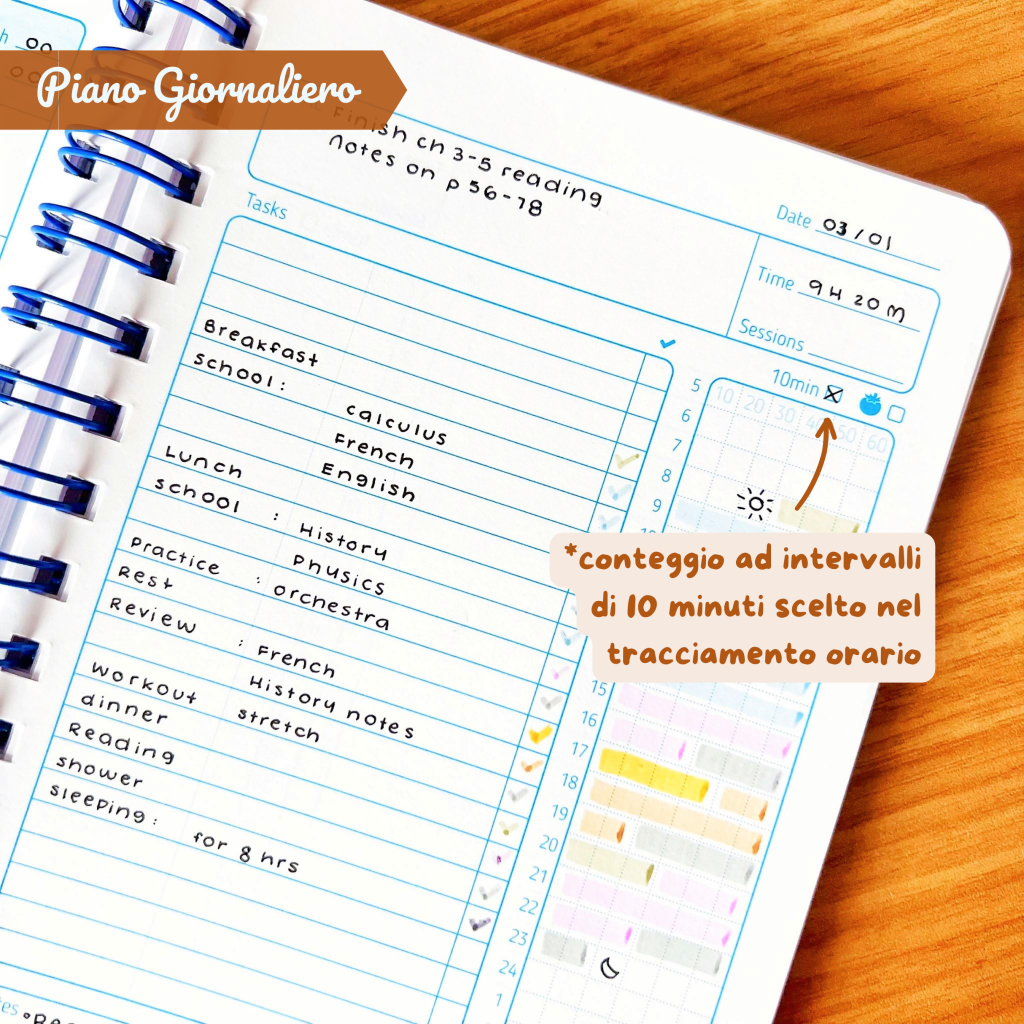 Piano Giornaliero
Finish ch 3-5 reading
Notes on p 56-78
Date 03/01
Time 9H 20M
Sessions
Tasks
10min
10 20 30 40 50 60
Breakfast
school: calculus
French
English
Lunch
school : History
Physics
Practice : orchestra
Rest
Review : French
History notes
workout stretch
dinner
Reading
shower
sleeping: for 8 hrs
5
6
7
8
9
15
16
17
18
19
20
21
22
23
24
1
*conteggio ad intervalli
di 10 minuti scelto nel
tracciamento orario